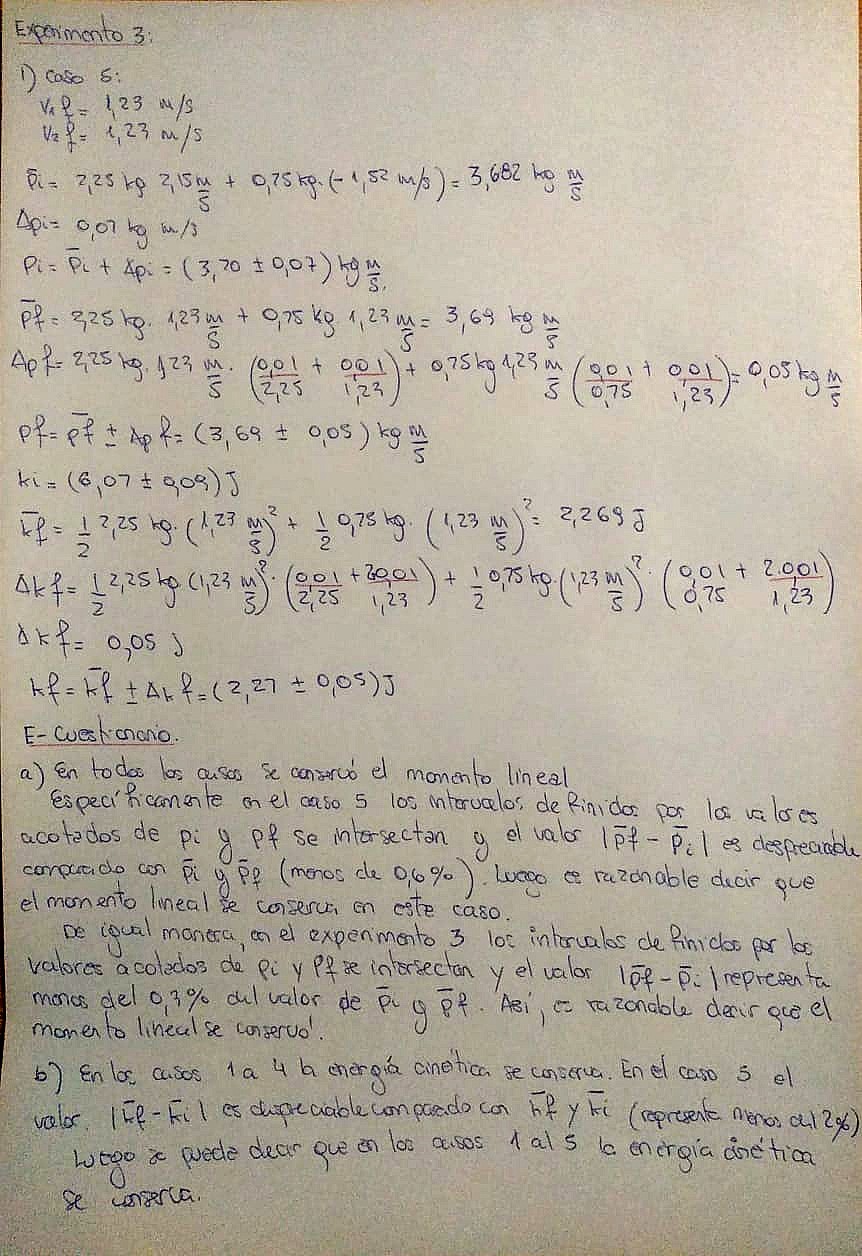 Experimento 3:
1) Caso 5:
V₁f = 1,23 m/s
V₂f = 1,23 m/s
p̄i = 2,25 kg 2,15 m/s + 0,75 kg.(-1,52 m/s) = 3,682 kg m/s
Δpi = 0,07 kg m/s
Pi = p̄i + Δpi = (3,70 ± 0,07) kg m/s.
p̄f = 2,25 kg. 1,23 m/s + 0,75 kg. 1,23 m/s = 3,69 kg m/s
Δpf = 2,25 kg. 1,23 m/s. (0,01/2,25 + 0,01/1,23) + 0,75 kg 1,23 m/s (0,01/0,75 + 0,01/1,23) = 0,05 kg m/s
pf = p̄f ± Δpf = (3,69 ± 0,05) kg m/s
ki = (6,07 ± 0,09) J
k̄f = 1/2 2,25 kg. (1,23 m/s)² + 1/2 0,75 kg. (1,23 m/s)² = 2,269 J
Δkf = 1/2 2,25 kg (1,23 m/s)². (0,01/2,25 + 2.0,01/1,23) + 1/2 0,75 kg. (1,23 m/s)². (0,01/0,75 + 2.0,01/1,23)
Δkf = 0,05 J
kf = k̄f ± Δkf = (2,27 ± 0,05) J
E- Cuestionario.
a) En todos los casos se conservó el momento lineal
Específicamente en el caso 5 los intervalos definidos por los valores
acotados de pi y pf se intersectan y el valor |p̄f - p̄i| es despreciable
comparado con p̄i y p̄f (menos de 0,6%). Luego es razonable decir que
el momento lineal se conserva en este caso.
De igual manera, en el experimento 3 los intervalos definidos por los
valores acotados de pi y pf se intersectan y el valor |p̄f - p̄i| representa
menos del 0,3% del valor de p̄i y p̄f. Así, es razonable decir que el
momento lineal se conservó.
b) En los casos 1 a 4 la energía cinética se conserva. En el caso 5 el
valor. |k̄f - k̄i| es despreciable comparado con k̄f y k̄i (representa menos del 2%)
Luego se puede decir que en los casos 1 al 5 la energía cinética
se conserva.